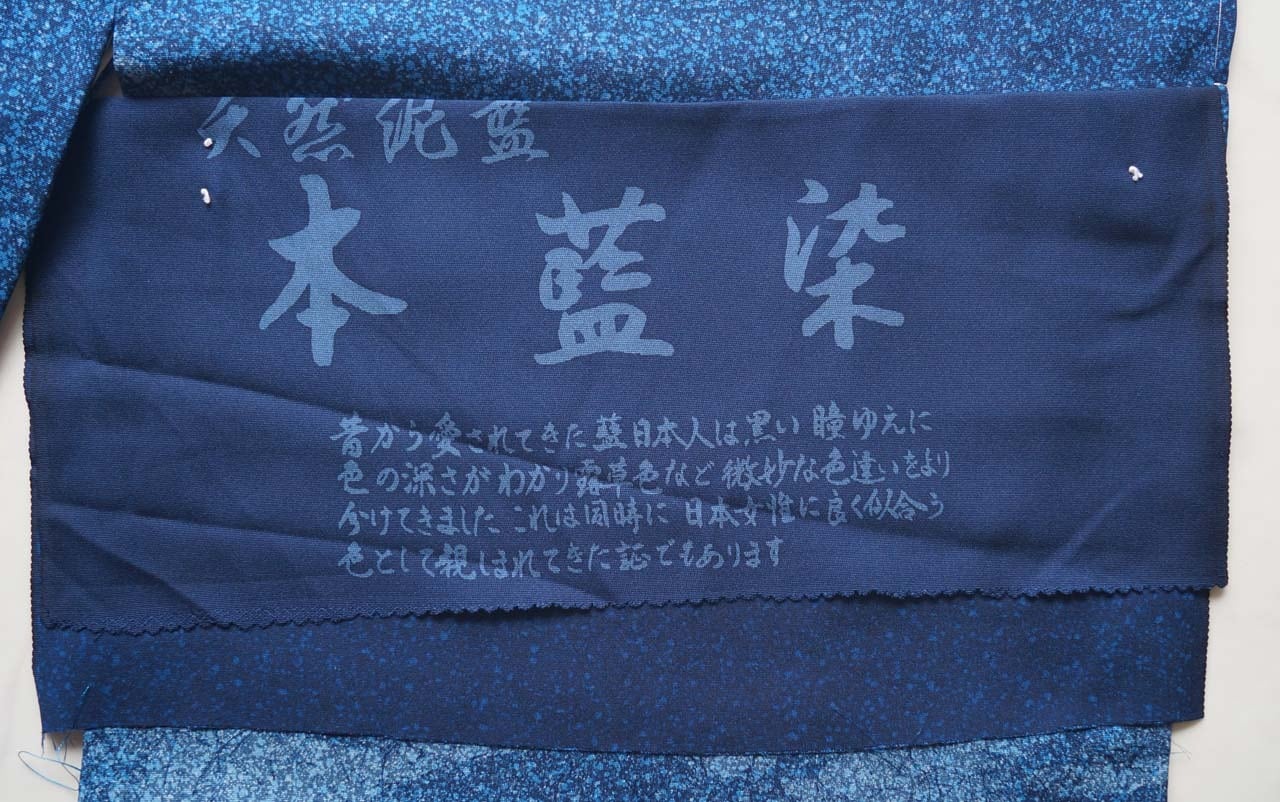 天然泥藍
本藍染
昔から愛されてきた藍日本人は黒い瞳ゆえに
色の深さがわかり露草色など微妙な色違いをより
分けてきました これは同時に 日本女性に良く似合う
色として親しまれてきた証でもあります